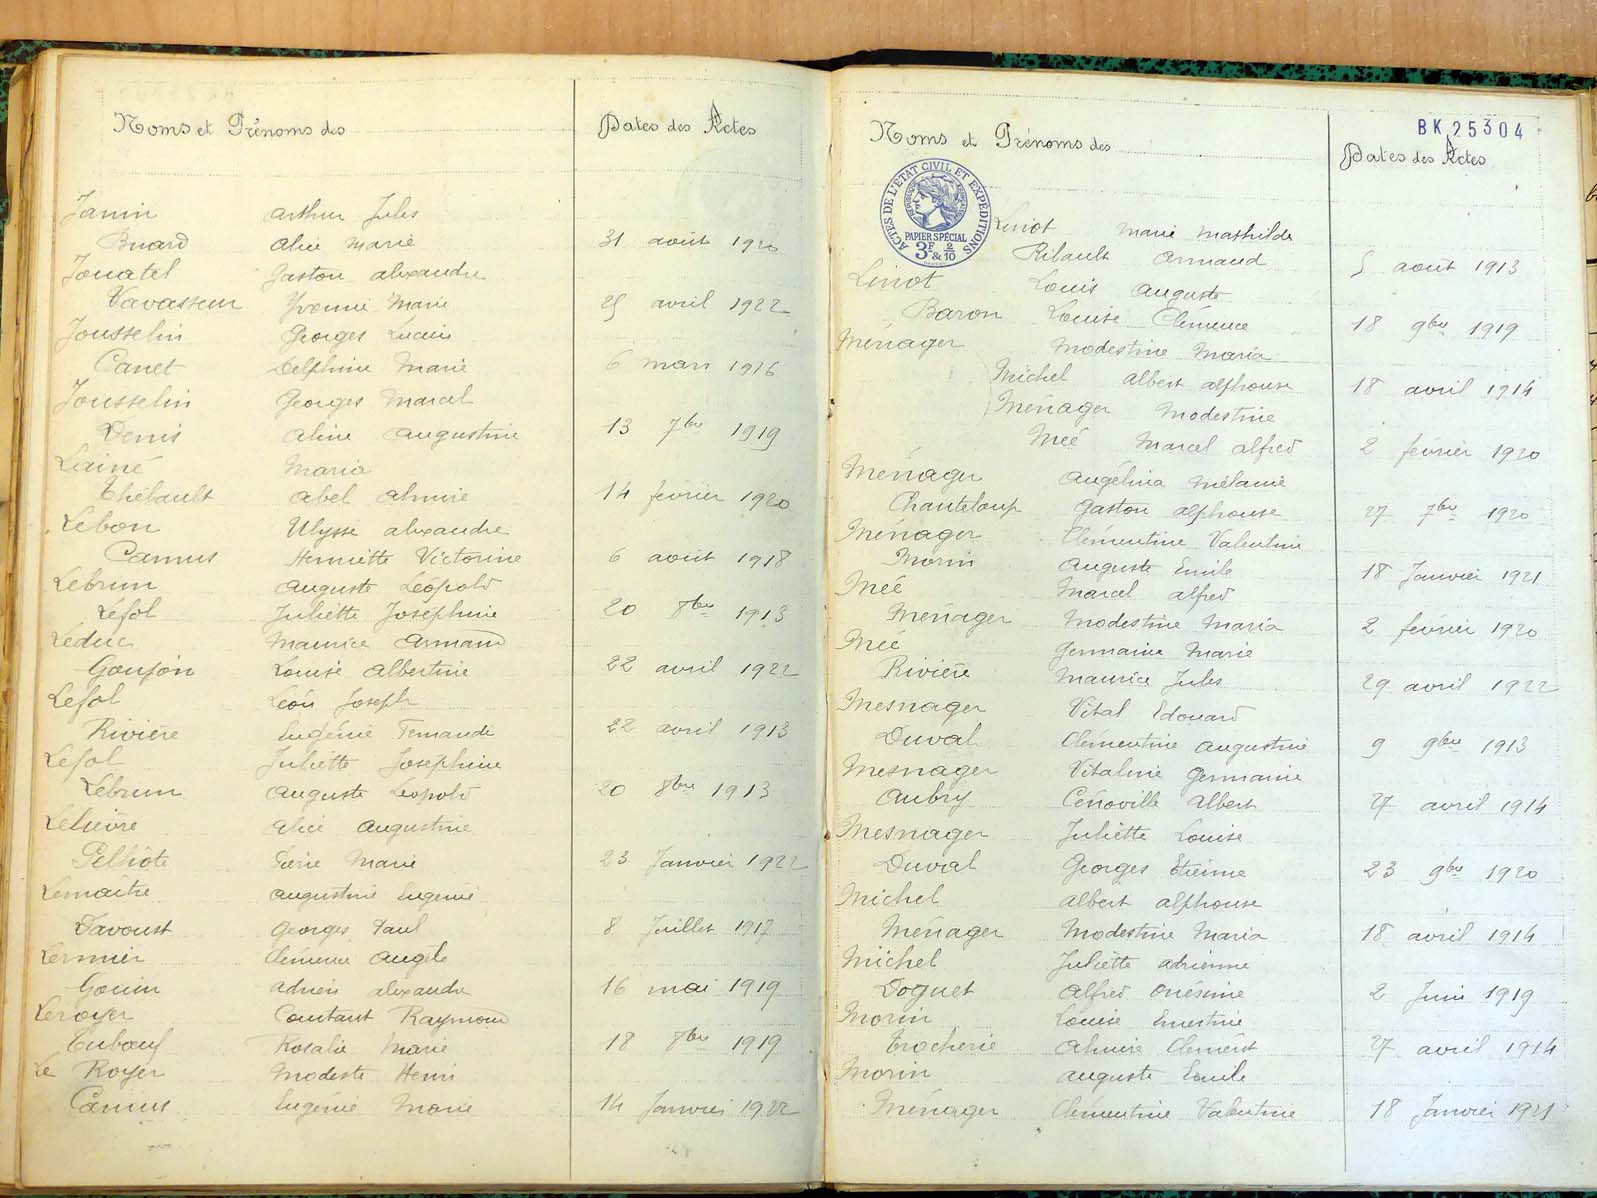 Noms et Prénoms des Dates des Actes
Janin Arthur Jules
Buard Alice Marie 31 août 1920
Jouatel Gaston Alexandre
Vavasseur Yvonne Marie 25 avril 1922
Jousselin Georges Lucien
Canet Delphine Marie 6 mars 1916
Jousselin Georges Marcel
Denis Aline Augustine 13 7bre 1919
Lainé Maria
Thébault Abel Almire 14 février 1920
Lebon Ulysse Alexandre
Camus Henriette Victorine 6 août 1918
Lebrun Auguste Léopold
Lefol Juliette Joséphine 20 8bre 1913
Leduc Maurice Armand
Goupon Louise Albertine 22 avril 1922
Lefol Léon Joseph
Rivière Eugénie Fernande 22 avril 1913
Lefol Juliette Joséphine
Lebrun Auguste Léopold 20 8bre 1913
Lelièvre Alice Augustine
Pelhôte Pierre Marie 23 Janvier 1922
Lemaître Augustine Eugénie
Davoust Georges Paul 8 Juillet 1917
Lermier Clémence Angèle
Gouin Adrien Alexandre 16 mai 1919
Leroyer Constant Raymond
Tuboeuf Rosalie Marie 18 8bre 1919
Le Royer Modeste Henri
Camus Eugénie Marie 14 Janvier 1922
BK 25304
Noms et Prénoms des Dates des Actes
ACTES DE L'ÉTAT CIVIL ET EXPÉDITIONS
PAPIER SPÉCIAL
3F & 2/10
Linot Marie Mathilde
Ribault Armand 5 août 1913
Linot Louis Auguste
Baron Louise Clémence 18 9bre 1919
Ménager Modestine Maria
Michel Albert Alphonse 18 avril 1914
Ménager Modestine
Méé Marcel Alfred 2 février 1920
Ménager Angélina Mélanie
Chanteloup Gaston Alphonse 27 7bre 1920
Ménager Clémentine Valentine
Morin Auguste Emile 18 Janvier 1921
Méé Marcel Alfred
Ménager Modestine Maria 2 février 1920
Méé Germaine Marie
Rivière Maurice Jules 29 avril 1922
Mesnager Vital Edouard
Duval Clémentine Augustine 9 9bre 1913
Mesnager Vitaline Germaine
Aubry Cénoville Albert 27 avril 1914
Mesnager Juliette Louise
Duval Georges Etienne 23 9bre 1920
Michel Albert Alphonse
Ménager Modestine Maria 18 avril 1914
Michel Juliette Adrienne
Doguet Alfred Onésime 2 Juin 1919
Morin Louise Ernestine
Trocherie Almire Clément 27 avril 1914
Morin Auguste Emile
Ménager Clémentine Valentine 18 Janvier 1921